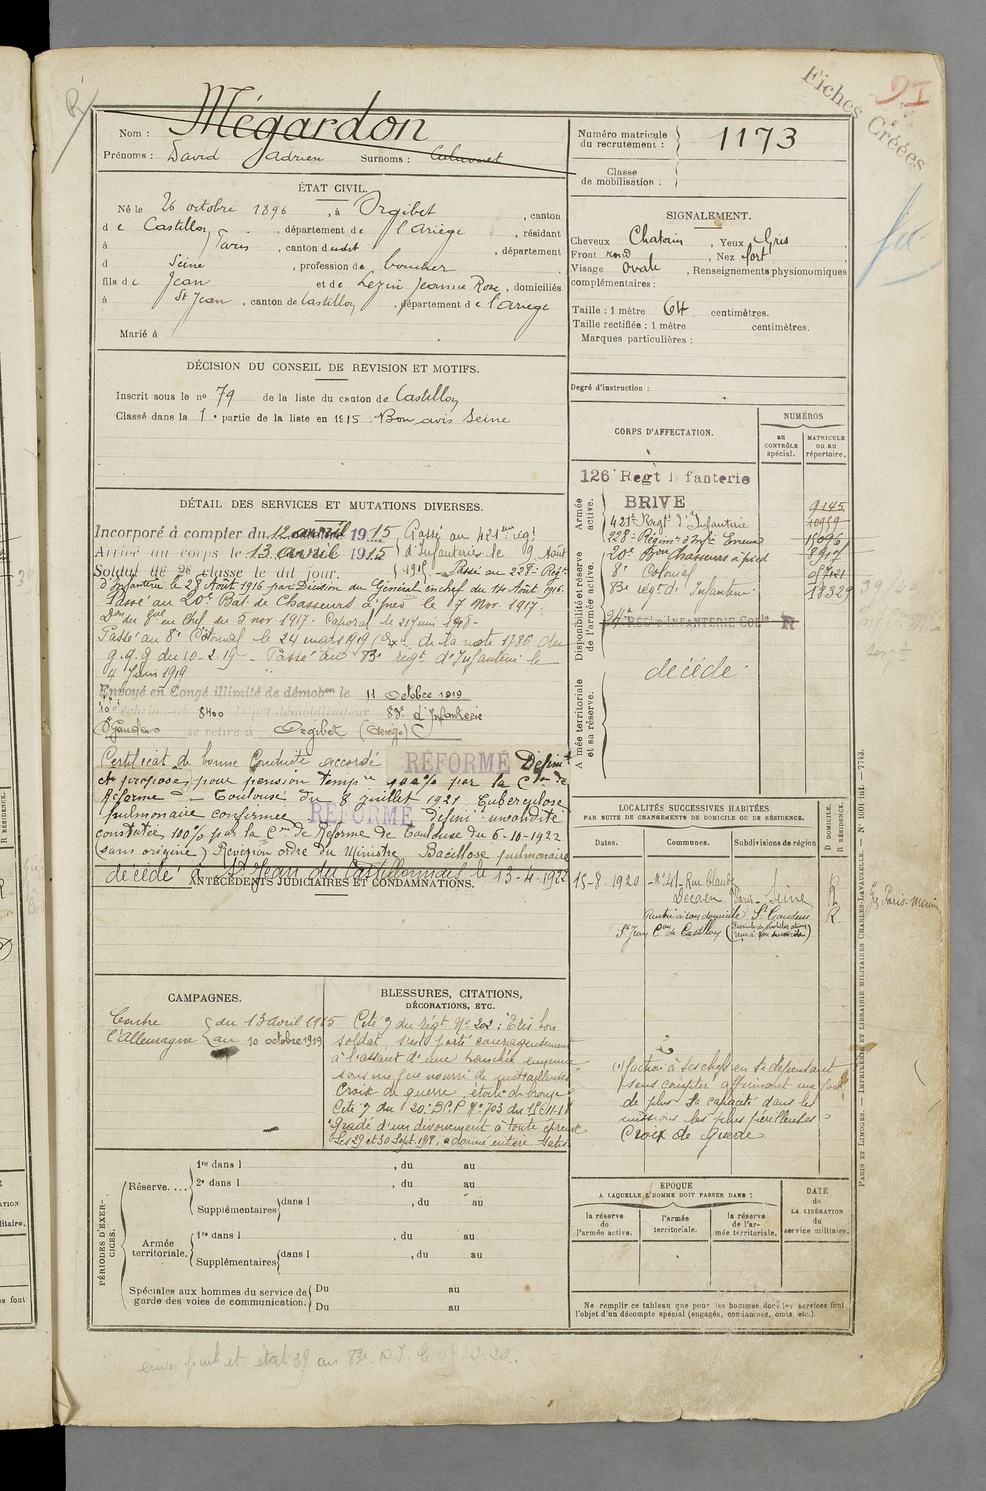 Fiches Créées
91
R
Nom : Mégardon
Prénoms : David Adrien Surnoms :
Numéro matricule du recrutement : 1173
Classe de mobilisation :
ÉTAT CIVIL.
Né le 26 octobre 1896, à Orgibet, canton
de Castillon, département de l'Ariège, résidant
à Paris, canton dudit, département
d Seine, profession de
fils de Jean et de Jeanne Rose, domiciliés
à St Jean, canton de Castillon, département de l'Ariège
Marié à
SIGNALEMENT.
Cheveux Chatain, Yeux Gris
Front rond, Nez fort
Visage ovale, Renseignements physionomiques
complémentaires :
Taille : 1 mètre 64 centimètres.
Taille rectifiée : 1 mètre centimètres.
Marques particulières :
Degré d'instruction :
DÉCISION DU CONSEIL DE REVISION ET MOTIFS.
Inscrit sous le no 79 de la liste du canton de Castillon
Classé dans la 1e partie de la liste en 1915. Bon, avis Seine
CORPS D'AFFECTATION.
NUMÉROS
au CONTRÔLE spécial.
MATRICULE ou au répertoire.
Armée active.
126e Regt Infanterie
BRIVE 9145
421e Regt d'Infanterie
228e Régim d'Infie
20e Bon Chasseurs à pied
8e Colonial
83e régt d'Infanterie 18329
24e REGt D'INFANTERIE COLle
Disponibilité et réserve de l'armée active.
décédé
Armée territoriale et sa réserve.
DÉTAIL DES SERVICES ET MUTATIONS DIVERSES.
Incorporé à compter du 12 avril 1915. Passé au 421eme régt
Arrivé au corps le 13 avril 1915 d'Infanterie le 9 Août
Soldat de 2e classe le dit jour. 1915 - Passé au 228e Regt
d'Infanterie le 28 Août 1916 par Décision du Général en chef du 14 Août 1916.
Passé au 20e Bat. de Chasseurs à pied le 7 Nov. 1917.
Don du Gal en Chef du 3 nov 1917. Caporal le 21 juin 1918-
Passé au 8e Colonial le 24 mars 1919 de la note 1786 du
G.Q.G du 10-2-19 - Passé au 83e régt d'Infanterie le
4 Juin 1919
Envoyé en Congé illimité de démobon le 11 Octobre 1919
10e échelon no 8400 Dépôt démobilisateur 83e d'Infanterie
St Gaudens se retire à Orgibet (Ariège)
Certificat de bonne Conduite accordé RÉFORMÉ Définit
et proposé pour pension temp re 100% par la Con de
Réforme de Toulouse du 8 juillet 1921. Tuberculose
pulmonaire confirmée RÉFORMÉ
constatée 100% par la Con de Réforme de Toulouse du 6-10-1922
(sans origine) Revision ordre du Ministre Bacillose pulmonaire
décédé à St Jean du Castillonnais le 13-4-1922
ANTÉCÉDENTS JUDICIAIRES ET CONDAMNATIONS.
LOCALITÉS SUCCESSIVES HABITÉES
PAR SUITE DE CHANGEMENTS DE DOMICILE OU DE RÉSIDENCE.
Dates. Communes. Subdivisions de région
D DOMICILE.
R RÉSIDENCE.
15-8-1920 No 41 - Rue Claude Decaen Paris - Seine R
Rentré à son domicile St Gaudens R
St Jean Con de Castillon
CAMPAGNES.
Contre l'Allemagne
du 13 avril 1915
au 10 octobre 1919
BLESSURES, CITATIONS,
DÉCORATIONS, ETC.
Cité à l'O du Régt No 202 : Très bon
soldat, s'est porté courageusement
à l'assaut d'une tranchée ennemie
sous un feu nourri de mitrailleuses
Croix de guerre, étoile de bronze
Cité à l'O du 20e B.C.P No 703 du
Gradé d'un dévouement à toute épreuve
Les 29 et 30 Sept. 1918, a donné entière satis
(1) faction à ses chefs en se dépensant
sans compter affirmant une fois
de plus sa capacité dans les
missions les plus périlleuses
Croix de Guerre
PÉRIODES D'EXERCICES.
Réserve....
1re dans l , du au
2e dans l , du au
Supplémentaires dans l , du au
Armée territoriale.
1re dans l , du au
Supplémentaires dans l , du au
Spéciales aux hommes du service de garde des voies de communication.
Du au
Du au
EPOQUE
A LAQUELLE L'HOMME DOIT PASSER DANS :
la réserve de l'armée active.
l'armée territoriale.
la réserve de l'armée territoriale.
DATE de LA LIBÉRATION du service militaire.
Ne remplir ce tableau que pour les hommes dont les services font
l'objet d'un décompte spécial (engagés, condamnés, omis, etc.).
PARIS ET LIMOGES. — IMPRIMERIE ET LIBRAIRIE MILITAIRES CHARLES-LAVAUZELLE. — No 1001 int. — 7743.